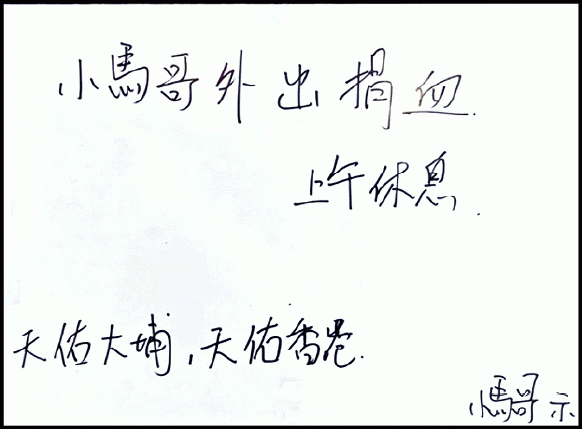 小馬哥外出捐血.
上午休息.
天佑大埔,天佑香港.
小馬哥 示